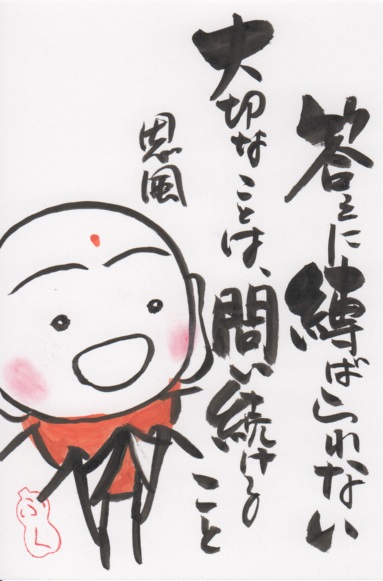 答えに縛ばられない
大切なことは、問い続けること
恩風